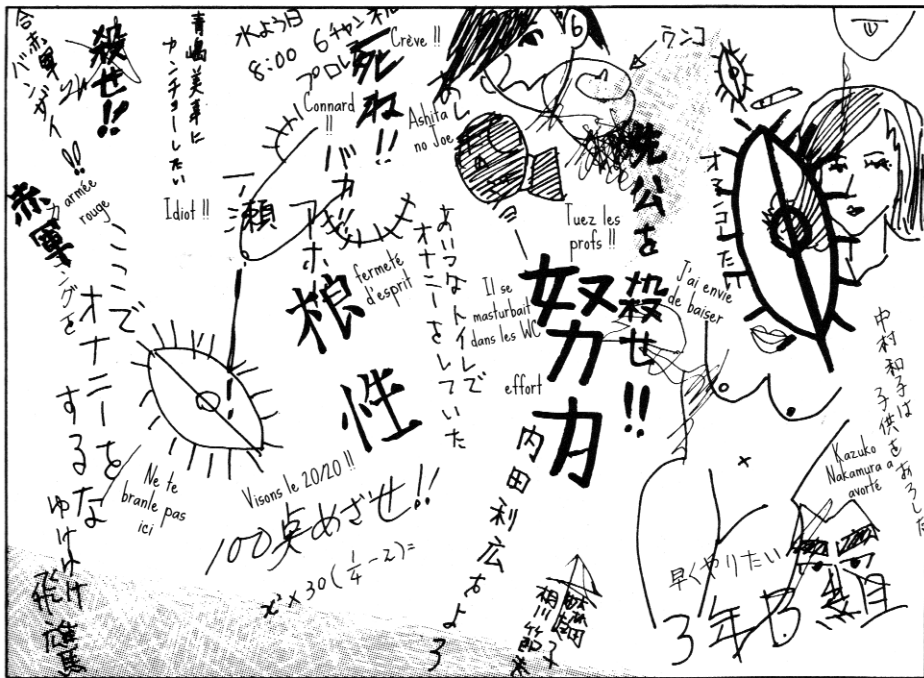 殺せ!!
青嶋美幸に
カンチョーしたい
水よう日
8:00 6チャンネル
プロレ
死ね!!
Crève !!
バカ
Connard !!
Ashita no Joe
ワンコ
先公を殺せ!!
Tuez les profs !!
オマンコしたい
J'ai envie de baiser
赤軍
armée rouge
Idiot !!
一ノ瀬
アホ
根性
fermeté d'esprit
あいつはトイレで
オナニーをしていた
Il se masturbait dans les WC
努力
effort
ここで
オナニーを
するな
Ne te branle pas ici
ゆけゆけ飛雄馬
Visons le 20/20 !!
100点めざせ!!
x² × 30 (1/4 - 2) =
内田利広
中村和子は
子供をおろした
Kazuko Nakamura a avorté
早くやりたい
3年B組